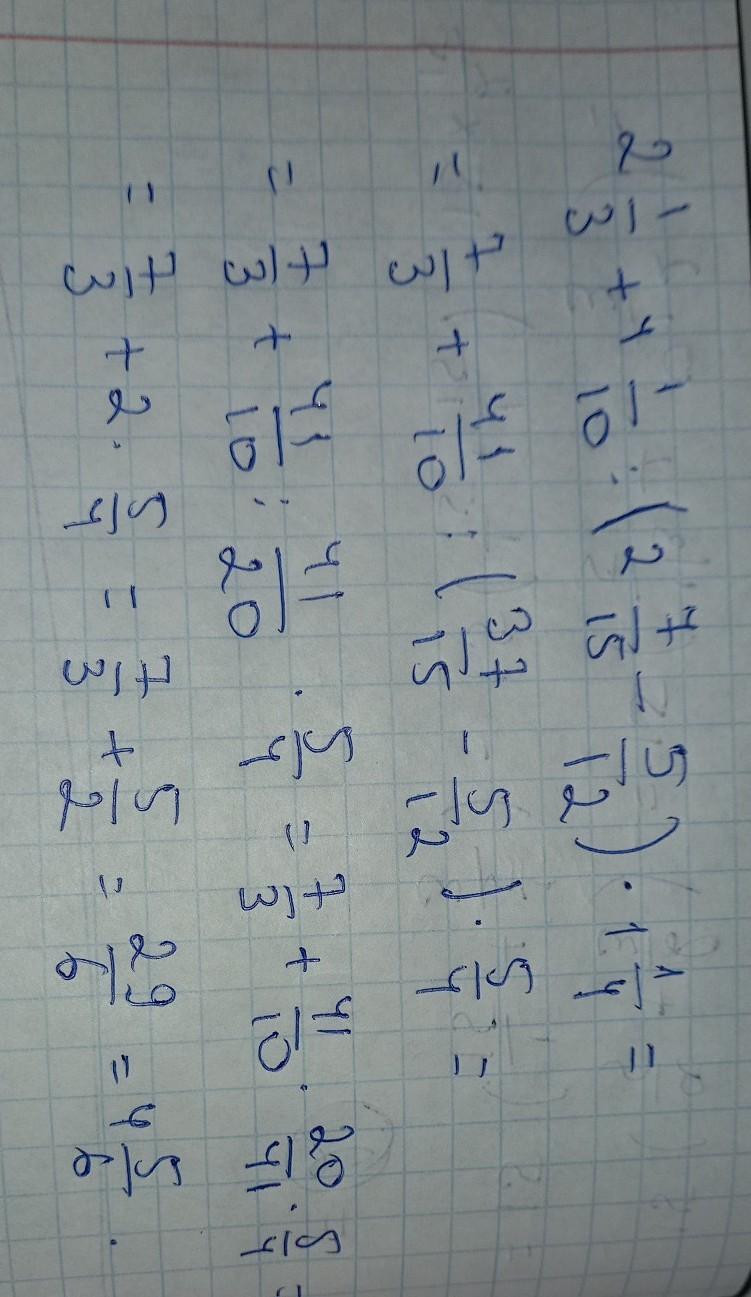 2 1/3 + 4 1/10 : (2 7/15 - 5/12) · 1 1/4 =
= 7/3 + 41/10 : (37/15 - 5/12) · 5/4 =
= 7/3 + 41/10 : 41/20 · 5/4 = 7/3 + 41/10 · 20/41 · 5/4 =
= 7/3 + 2 · 5/4 = 7/3 + 5/2 = 29/6 = 4 5/6 .